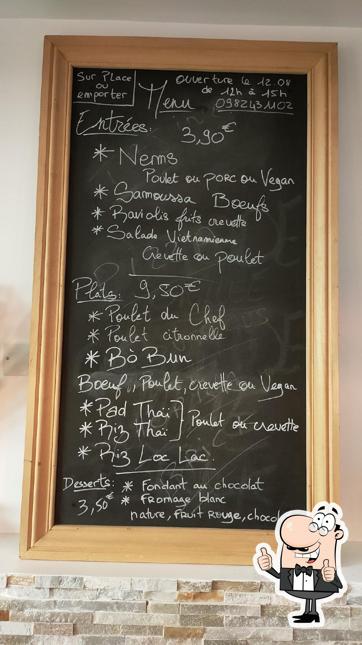 Sur Place
ou
emporter
Ouverture le 12.08
de 12h à 15h
Menu 0982431102
Entrées: 3,90€
* Nems
Poulet ou porc ou Vegan
* Samoussa Boeufs
* Raviolis frits crevette
* Salade Vietnamienne
Crevette ou poulet
Plats: 9,50€
* Poulet du Chef
* Poulet citronnelle
* Bò Bun
Boeuf, Poulet, crevette ou Vegan
* Pad Thaï
* Riz Thaï
Poulet ou crevette
* Riz Loc Lac.
Desserts: * Fondant au chocolat
3,50€ * fromage blanc
nature, fruit rouge, chocol